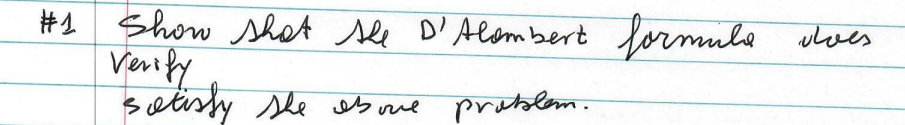 #1 Show that the D'Alembert formula does
Verify
satisfy the above problem.